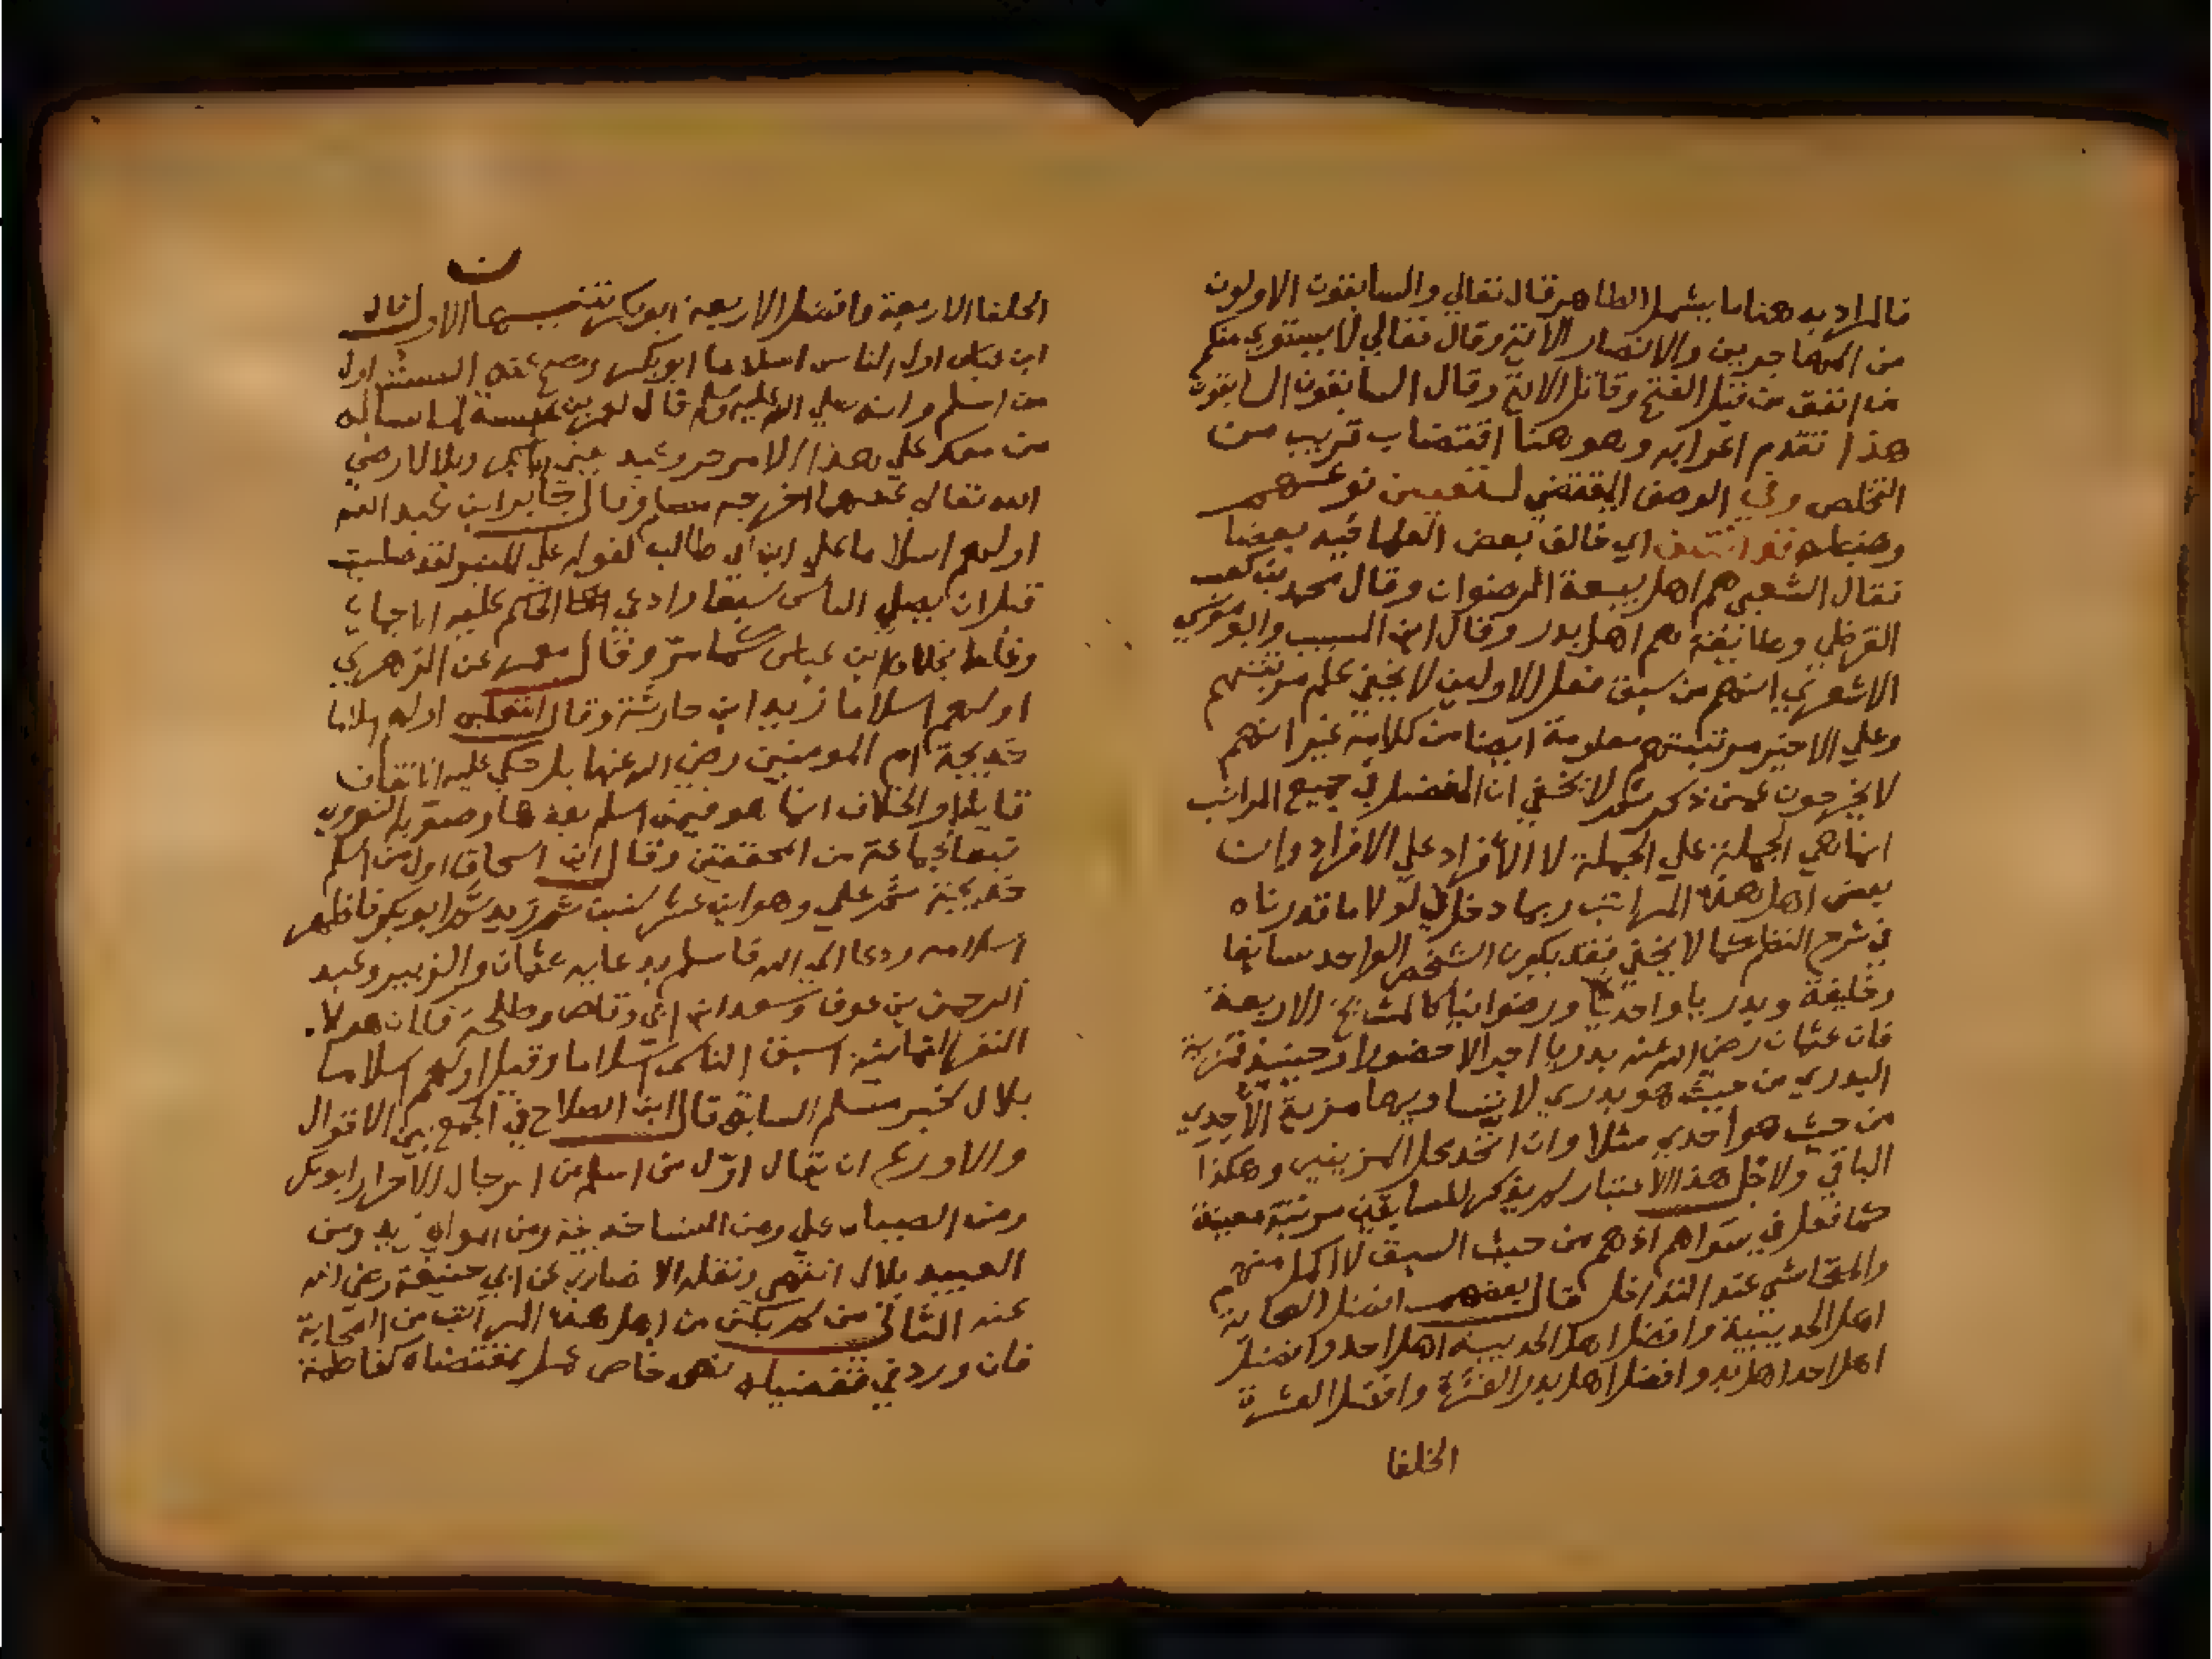 فالمراد به هنا ما يشمل الظاهر قال تعالي والسابقون الاولون
من المهاجرين والانصار الاية وقال تعالي لا يستوي منكم
من انفق من قبل الفتح وقاتل الاية وقال السابقون السابقون
هذا تقدم اعرابه وهو هنا اقتضاب قريب من
التخلص وفي الوصف المقتضي لتعيين نوعهم
اي خالف بعض العلما فيه بعضا
فقال الشعبي هم اهل بيعة الرضوان وقال محمد بن كعب
القرظي وطائفة هم اهل بدر وقال ابن المسيب وابو موسي
الاشعري انهم من سبق فعلي الاولين لا يخفي علم مرتبتهم
وعلي الاخير مرتبتهم معلومة ايضا من كلامه غير انهم
لا يخرجون عمن ذكر ثم لا يخفي ان التفضيل في جميع المراتب
انما هي الجملة علي الجملة لا الأفراد علي الافراد وان
بعض اهل هذه المراتب ربما دخل في لولا ما قدرناه
في شرح النظم كما لا يخفي فقد يكون الشخص الواحد سابقا
وخليفة وبدريا واحديا ورضوانيا كالمشايخ الاربعة
فان عثمان رضي الله عنه بدريا اجرا لا حضورا وحينئذ فمزية
البدري من حيث هو بدري لا يساويها مزية الأحدي
من حيث هو احدي مثلا وان اتحد محل المزيتين وهكذا
الباقي ولاجل هذا الاعتبار لم يذكر للسابقين مرتبة معينة
كما فعل في سواهم اذ هم من حيث السبق لا اكمل منهم
والمتحاشي عند التداخل قال بعضهم افضل الصحابة
اهل الحديبية وافضل اهل الحديبية اهل احد وافضل
اهل احد اهل بدر وافضل اهل بدر العشرة وافضل العشرة
الخلفا
الخلفا الاربعة وافضل الاربعة ابو بكر تنبيهان الاول قال
ابن عباس اول الناس اسلاما ابو بكر اول
من اسلم وانه صلي الله عليه وسلم قال لعمرو بن عبسة لما ساله
من معك علي هذا الامر حر وعبد يعني ابا بكر وبلالا رضي
الله تعالي عنهما اخرجه مسلم وقال جابر ابن عبد الله
اولهم اسلاما علي ابن ابي طالب لقوله علي المنبر لقد صليت
قبل ان يصلي الناس سبعا وادعي الحاكم عليه الاجماع
وغلط بكلام ابن عباس كما مر وقال معمر عن الزهري
اولهم اسلاما زيد ابن حارثة وقال الثعلبي اولهم اسلاما
خديجة ام المومنين رضي الله عنها بل حكي عليه الاتفاق
قايلا والخلاف انما هو فيمن اسلم بعدها وصوبه النووي
تبعا لجماعة من المحققين وقال ابن اسحاق اول من اسلم
خديجة ثم علي وهو ابن عشر سنين ثم زيد ثم ابو بكر فاظهر
اسلامه ودعا الي الله فاسلم بدعايه عثمان والزبير وعبد
الرحمن بن عوف وسعد ابن ابي وقاص وطلحة فكان هولا
النفر الثمانية اسبق الناس اسلاما وقيل اولهم اسلاما
بلال لخبر مسلم السابق قال ابن الصلاح في الجمع بين الاقوال
والاورع ان يقال اول من اسلم من الرجال الأحرار ابو بكر
ومن الصبيان علي ومن النسا خديجة ومن الموالي زيد ومن
العبيد بلال انتهي ونقله الاخباري عن ابي حنيفة رضي الله
عنه الثاني من لم يكن من اهل هذه المراتب من الصحابة
فان ورد في تفضيله نص خاص عمل بمقتضاه كفاطمة